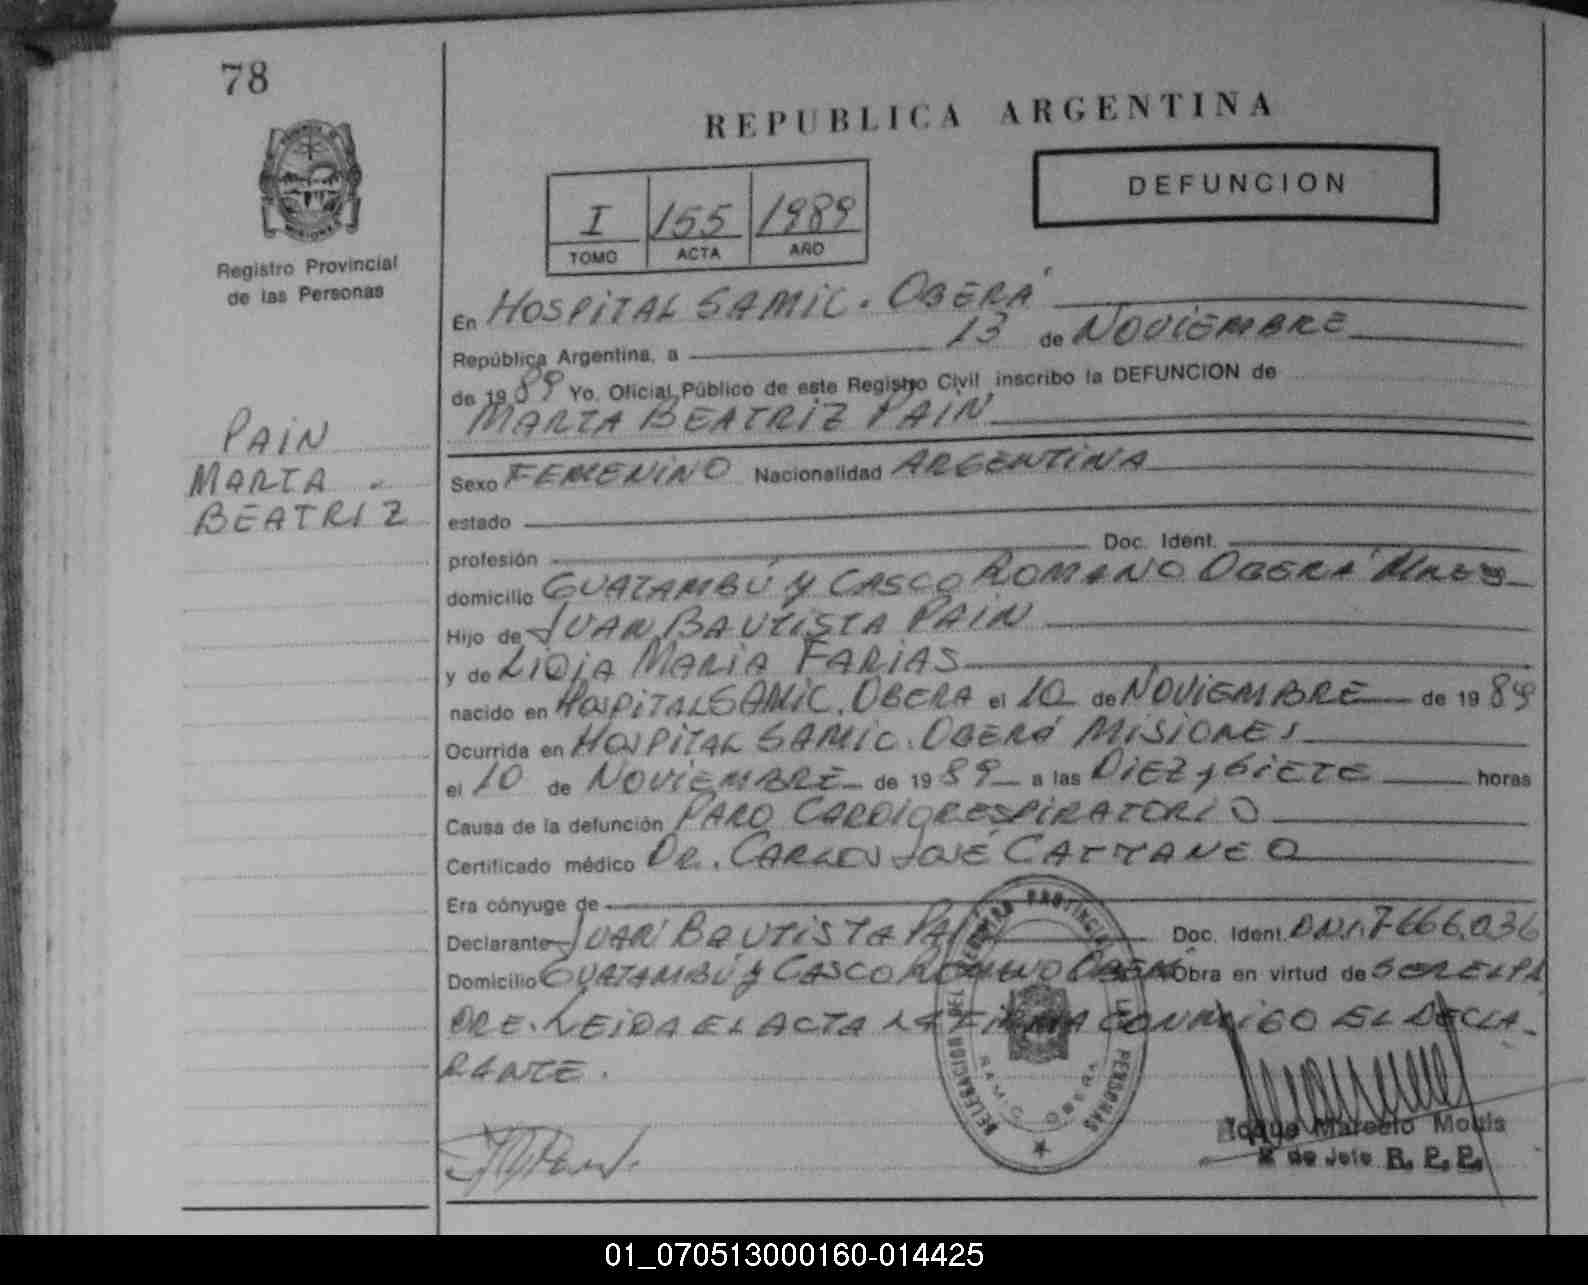 78
REPUBLICA ARGENTINA
DEFUNCION
I 155 1989
TOMO ACTA AÑO
Registro Provincial
de las Personas
PAIN
MARTA
BEATRIZ
En HOSPITAL SAMIC. OBERÁ
República Argentina, a 13 de NOVIEMBRE
de 1989 Yo, Oficial Público de este Registro Civil inscribo la DEFUNCION de
MARTA BEATRIZ PAIN
Sexo FEMENINO Nacionalidad ARGENTINA
estado
profesión Doc. Ident.
domicilio GUATAMBÚ y CASCO ROMANO OBERÁ
Hijo de JUAN BAUTISTA PAIN
y de LIDIA MARIA FARIAS
nacido en HOSPITAL SAMIC. OBERA el 10 de NOVIEMBRE de 1989
Ocurrida en HOSPITAL SAMIC. OBERÁ MISIONES
el 10 de NOVIEMBRE de 1989 a las DIEZ y SIETE horas
Causa de la defunción PARO CARDIORESPIRATORIO
Certificado médico DR. CARLOS JOSÉ CATTANEO
Era cónyuge de
Declarante JUAN BAUTISTA PAIN Doc. Ident. DNI. 7.666.036
Domicilio GUATAMBÚ y CASCO ROMANO OBERÁ Obra en virtud de SER EL PA
DRE. LEIDA EL ACTA LA FIRMA CONMIGO EL DECLA-
RANTE.
DELEGACION DEL REGISTRO PROVINCIAL DE LAS PERSONAS
SAMIC OBERA
Roque Marcelo
2º de Jefe R. P. P.
01_070513000160-014425